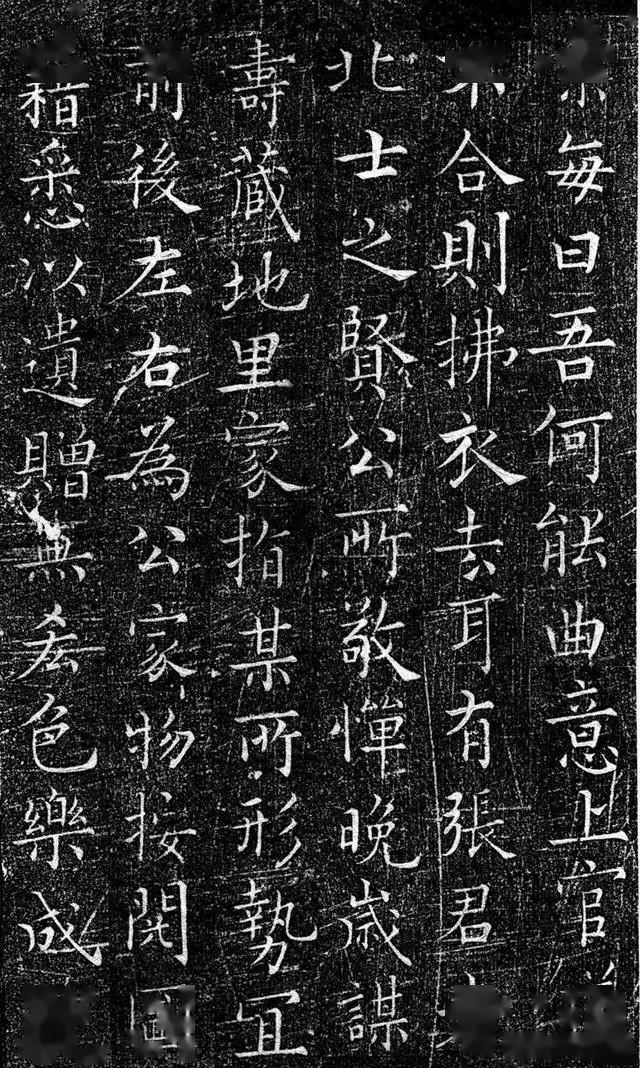 每曰吾何能曲意上官
合則拂衣去耳有張君
北士之賢公所敬憚晚歲謀
壽藏地里家指某所形勢宜
前後左右為公家物按閱圖
籍悉以遺贈無吝色樂成